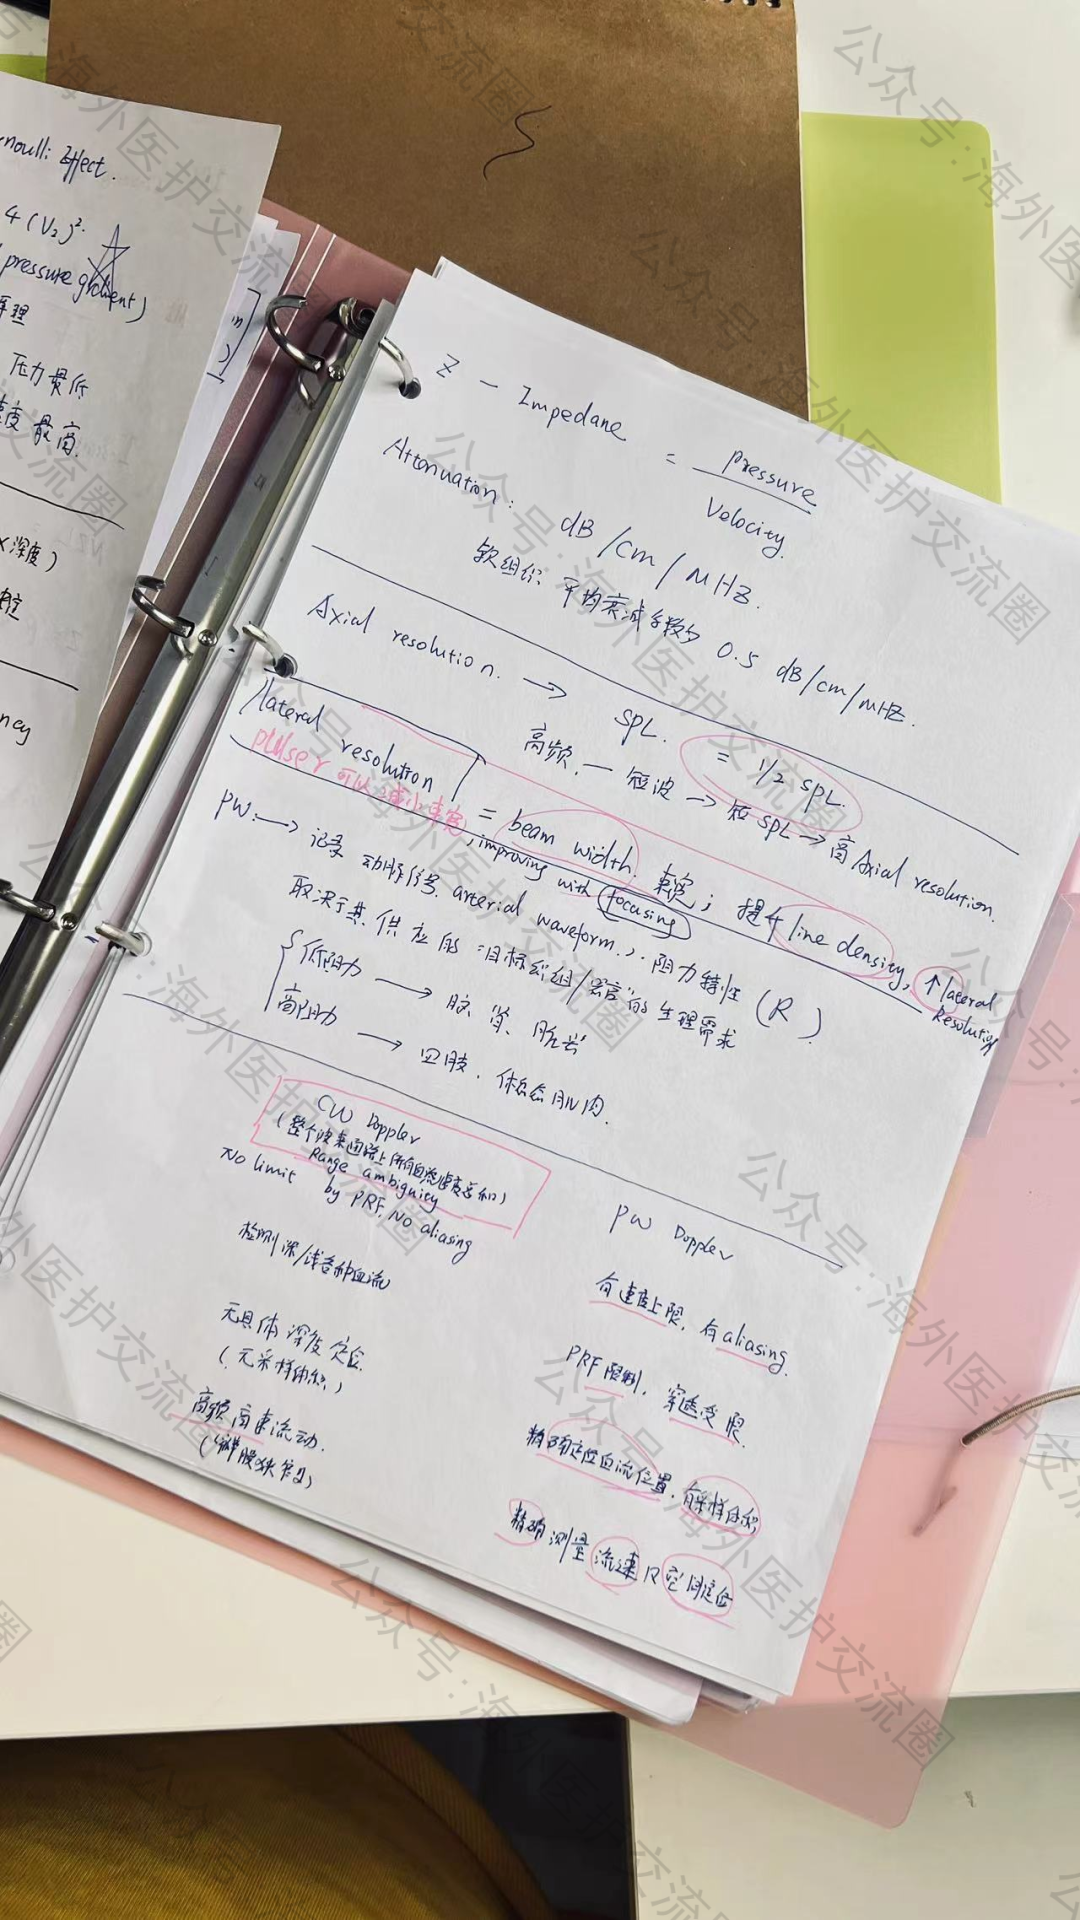 noulli Effect.
4 (V₂)².
pressure gradient)
原理
压力最低
速度最高.
(深度)
ncy
Z — Impedane = Pressure / Velocity.
Attenuation: dB/cm/MHZ.
软组织: 平均衰减系数 0.5 dB/cm/MHZ.
Axial resolution. → SPL. = 1/2 SPL.
高频. — 短波 → 短 SPL → 高 Axial resolution.
lateral resolution = beam width. 束宽; 提升 line density, ↑ lateral Resolution
可以减小束宽, improving with focusing
PW. → 记录 动脉 arterial waveform.). 阻力特性 (R)
取决于其 供应的 "目标组织/器官"的生理需求
低阻力 → 脑、肾、
高阻力 → 四肢. 休息态肌肉.
CW Doppler
Range ambiguity
No limit by PRF. No aliasing
检测深/浅各种血流
无具体深度定位
(无采样体积)
高频高速流动.
(瓣膜狭窄)
PW Doppler
有速度上限. 有aliasing.
PRF限制. 穿透受限.
精确定位血流位置. 有采样体积
精确测量流速及空间定位
公众号:海外医护交流圈
公众号:海外医护交流圈
公众号:海外医护交流圈
公众号:海外医护交流圈
公众号:海外医护交流圈